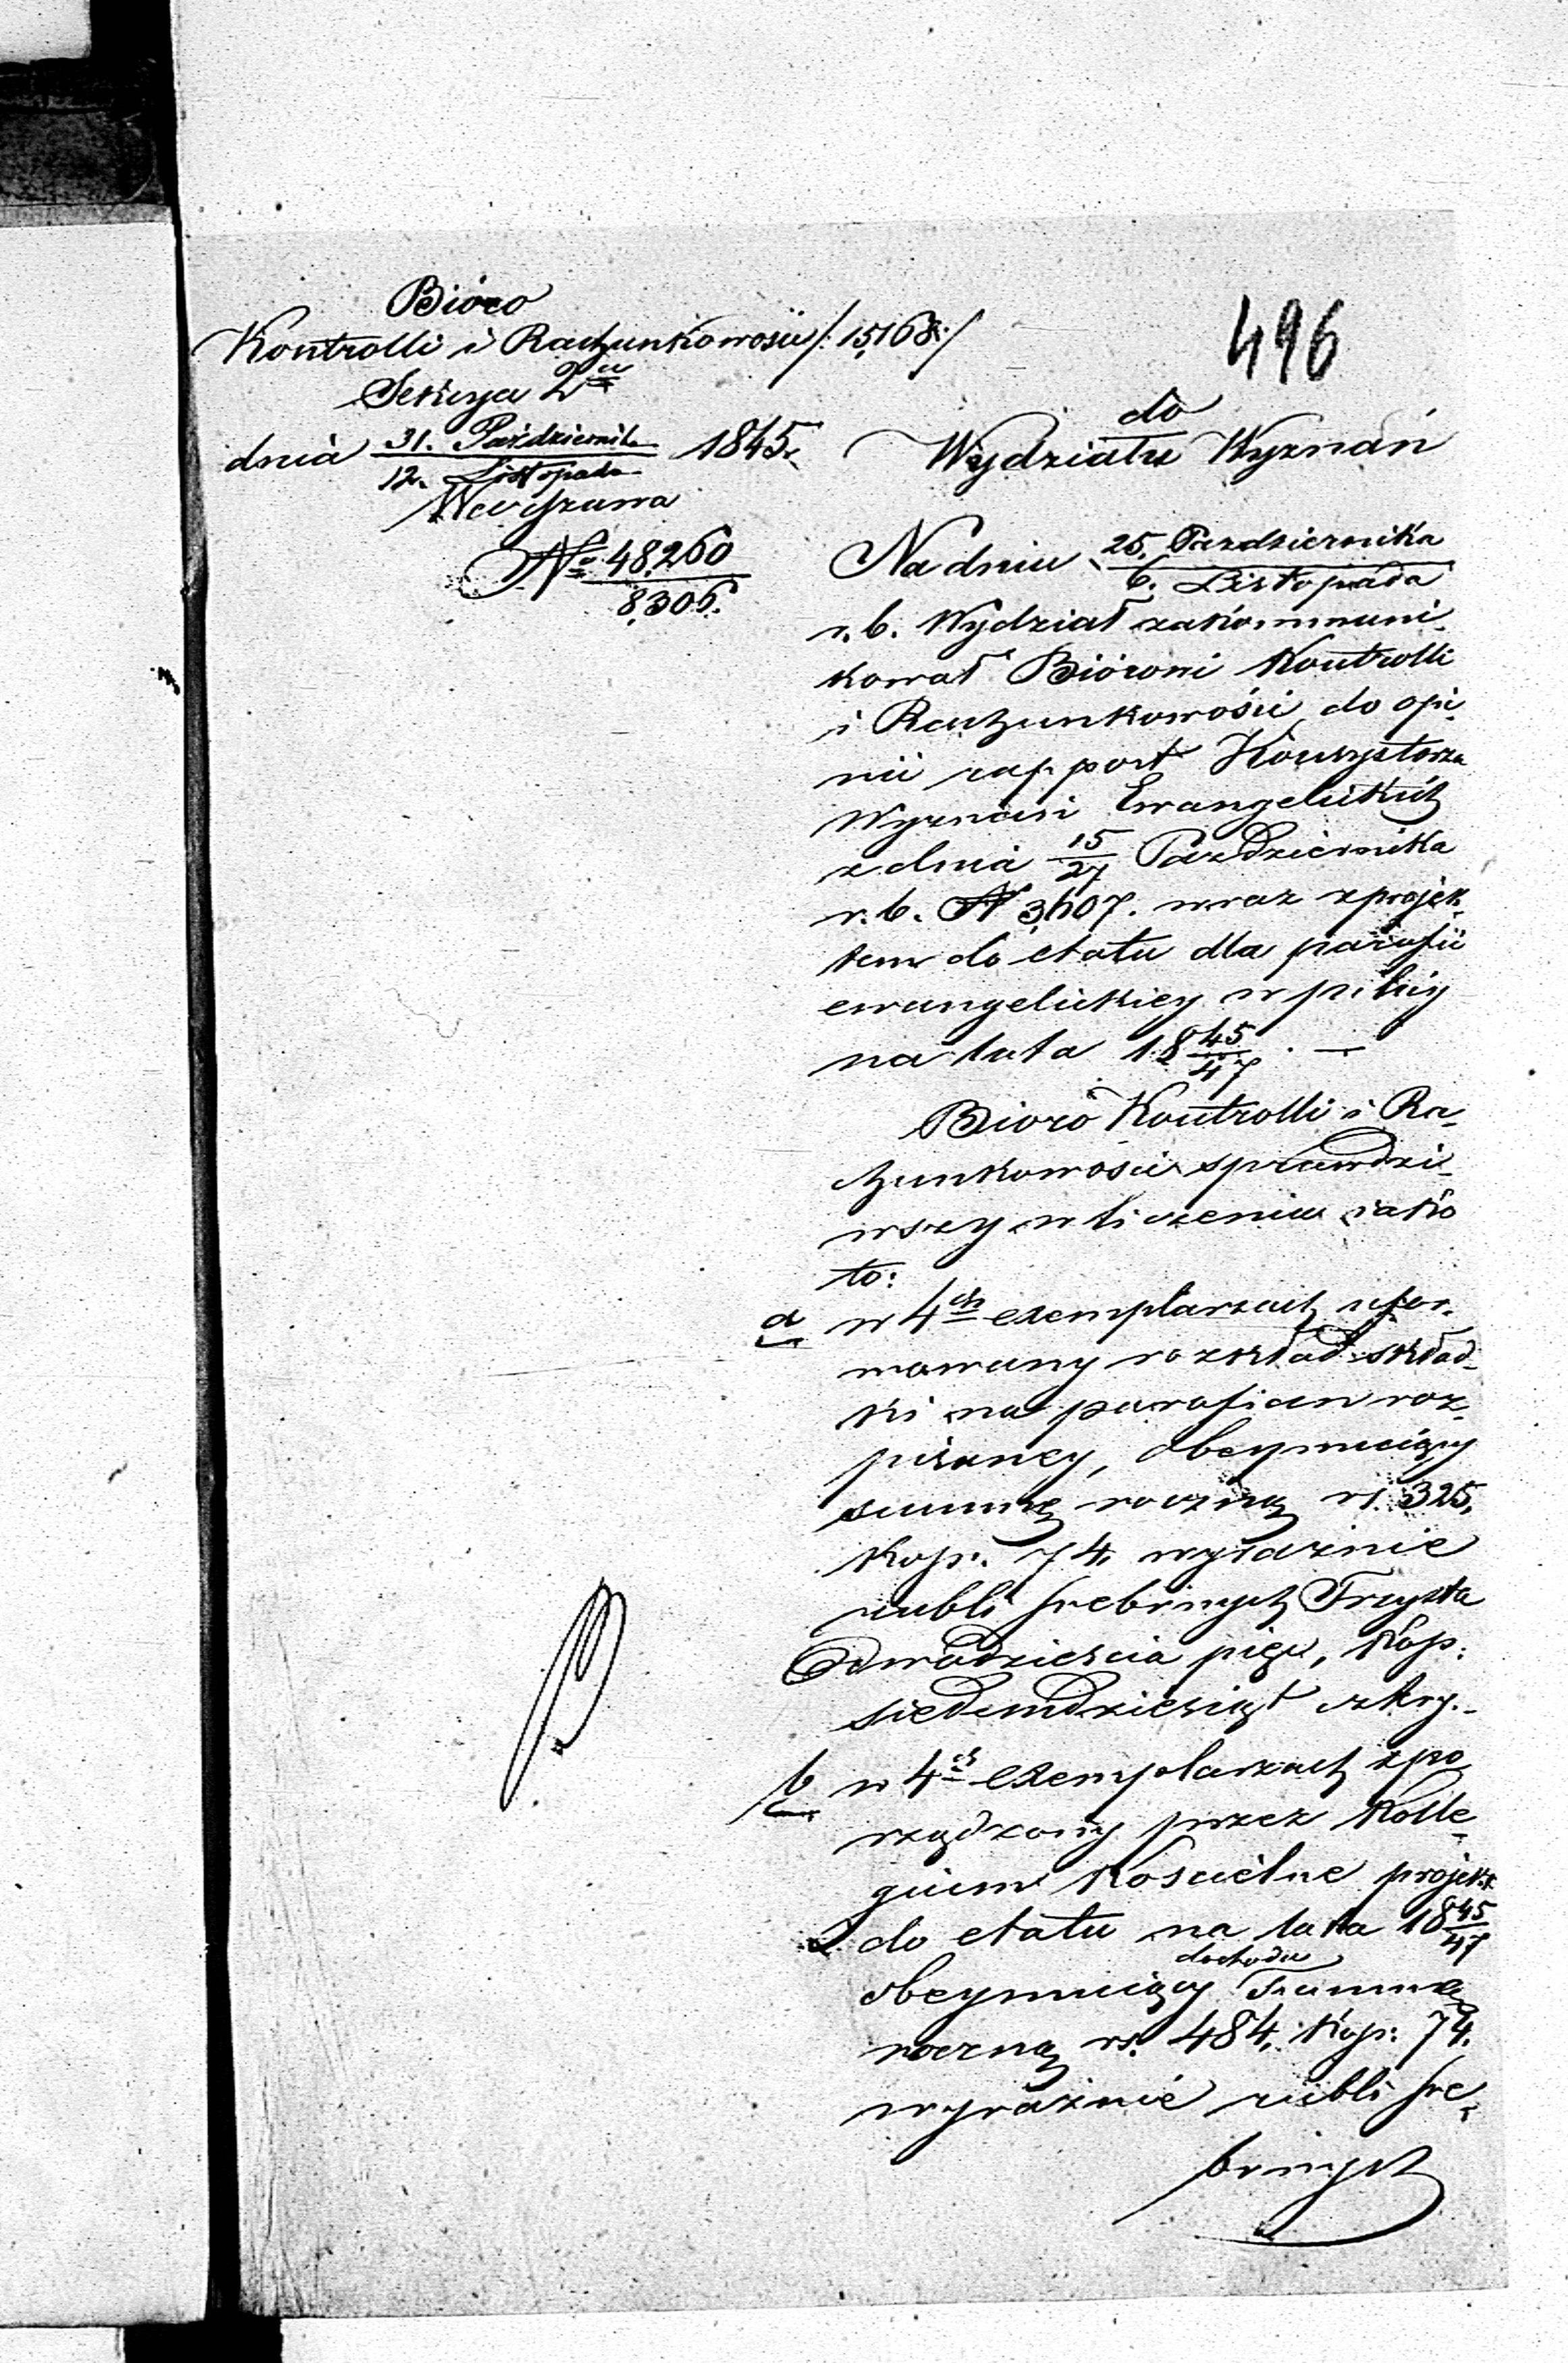 Bióro
Kontrolli i Rachunkowości /:15,168:/
Sekcya 2ga
dnia 31. Października / 12. Listopada 1845r.
Warszawa
No 48,260 / 8,306.
496
do
Wydziału Wyznań
Na dniu 25. Pazdziernika / 6. Listopada
r. b. Wydział zakommuni-
kował Biórowi Kontrolli
i Rachunkowości do opi-
nii rapport Konsystorza
Wyznań Ewangelickich
z dnia 15/27 Pazdziernika
r. b. N 3,607. wraz z projek-
tem do etatu dla parafii
ewangelickiey w Pilicy
na lata 1845/47. —
Bióro Kontrolli i Ra-
chunkowości sprawdzi-
wszy w liczeniu jako
to:
a w 4ch exemplarzach ufor-
mowany rozkład skład-
ki na parafian roz-
pisaney, obeymuiący
summę roczną rs. 325,
kop. 74, wyraźnie
rubli srebrnych Trzysta
dwadzieścia pięć, kop:
siedemdziesiąt cztery.-
b w 4ch exemplarzach spo-
rządzony przez Kolle-
gium Kościelne projekt
do etatu na lata 1845/47
obeymuiący dochodu summę
roczną rs. 484, kop: 74.
wyraźnie rubli sre-
brnych